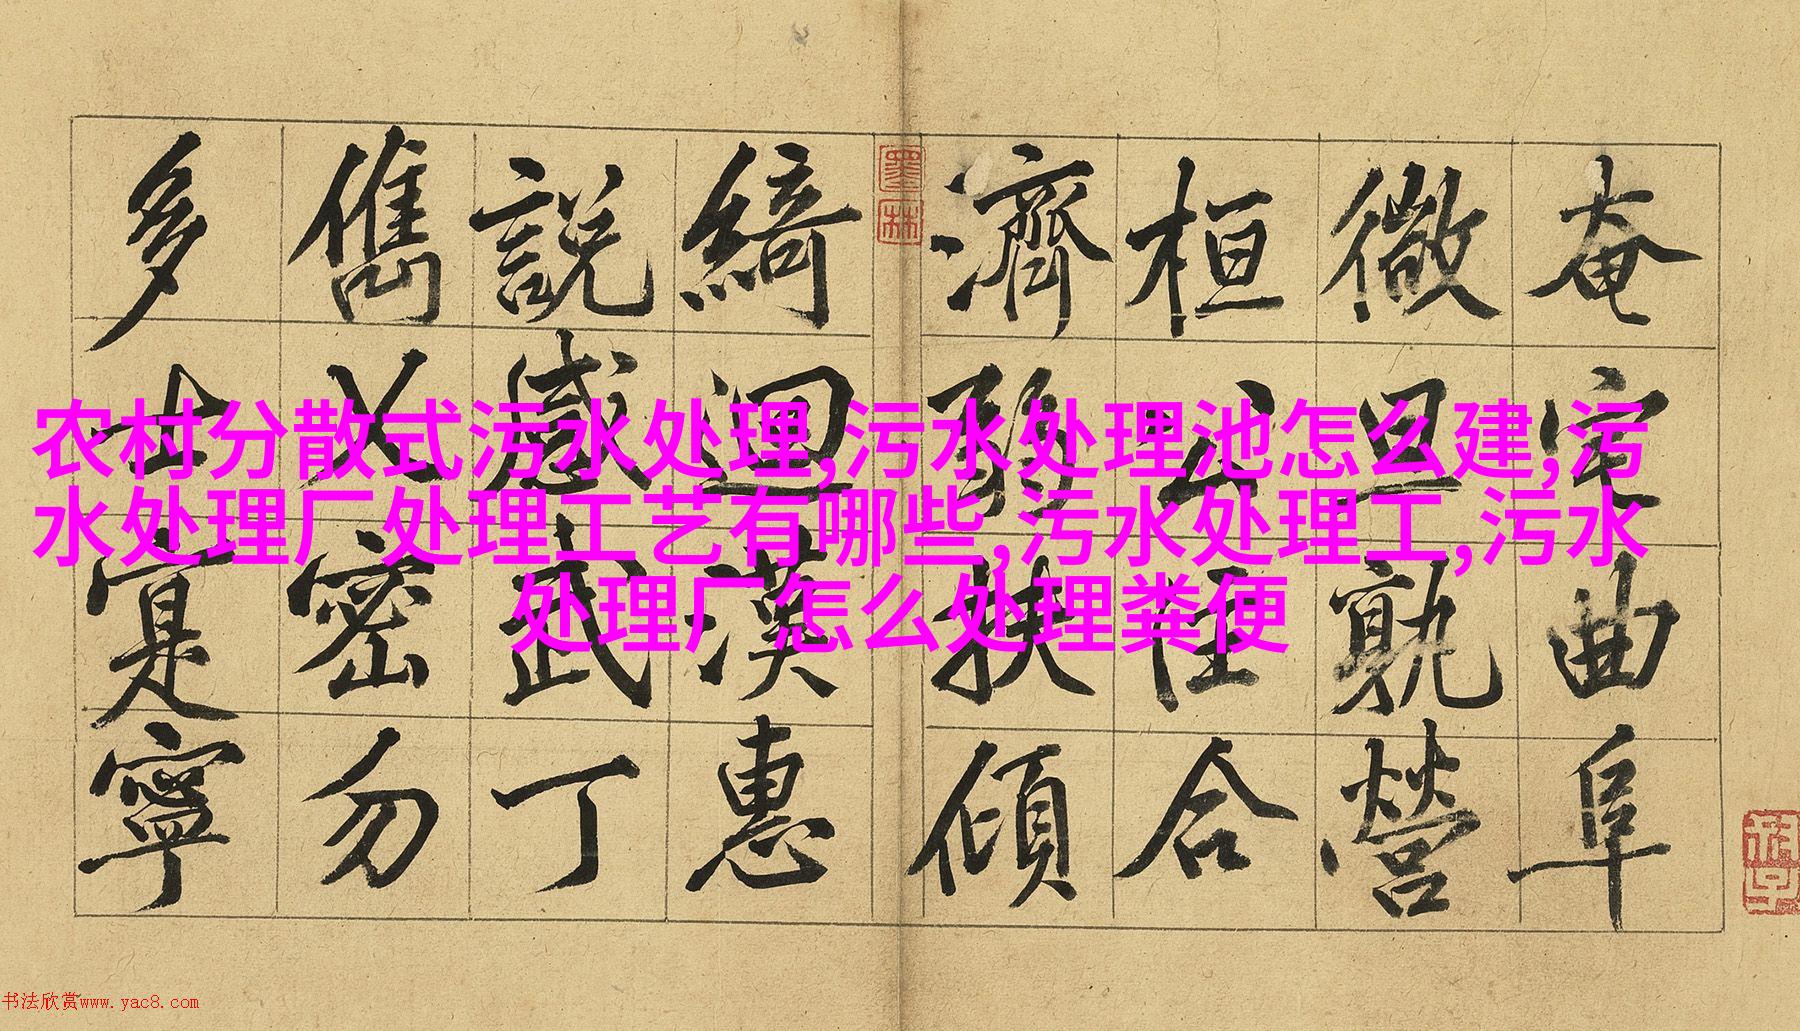 奄宅曲阜
微旦孰營
桓公匡合
濟弱扶傾
綺迴漢惠
説感武丁
儁乂密勿
多士寔寧
墨林
农村分散式污水处理,污水处理池怎么建,污
水处理厂处理工艺有哪些,污水处理工,污水
处理厂怎么处理粪便
书法欣赏www.yac8.com